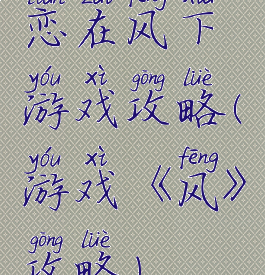 liàn zài fēng xià
恋在风下
yóu xì gōng lüè
游戏攻略(
yóu xì fēng
游戏《风》
gōng lüè
攻略)